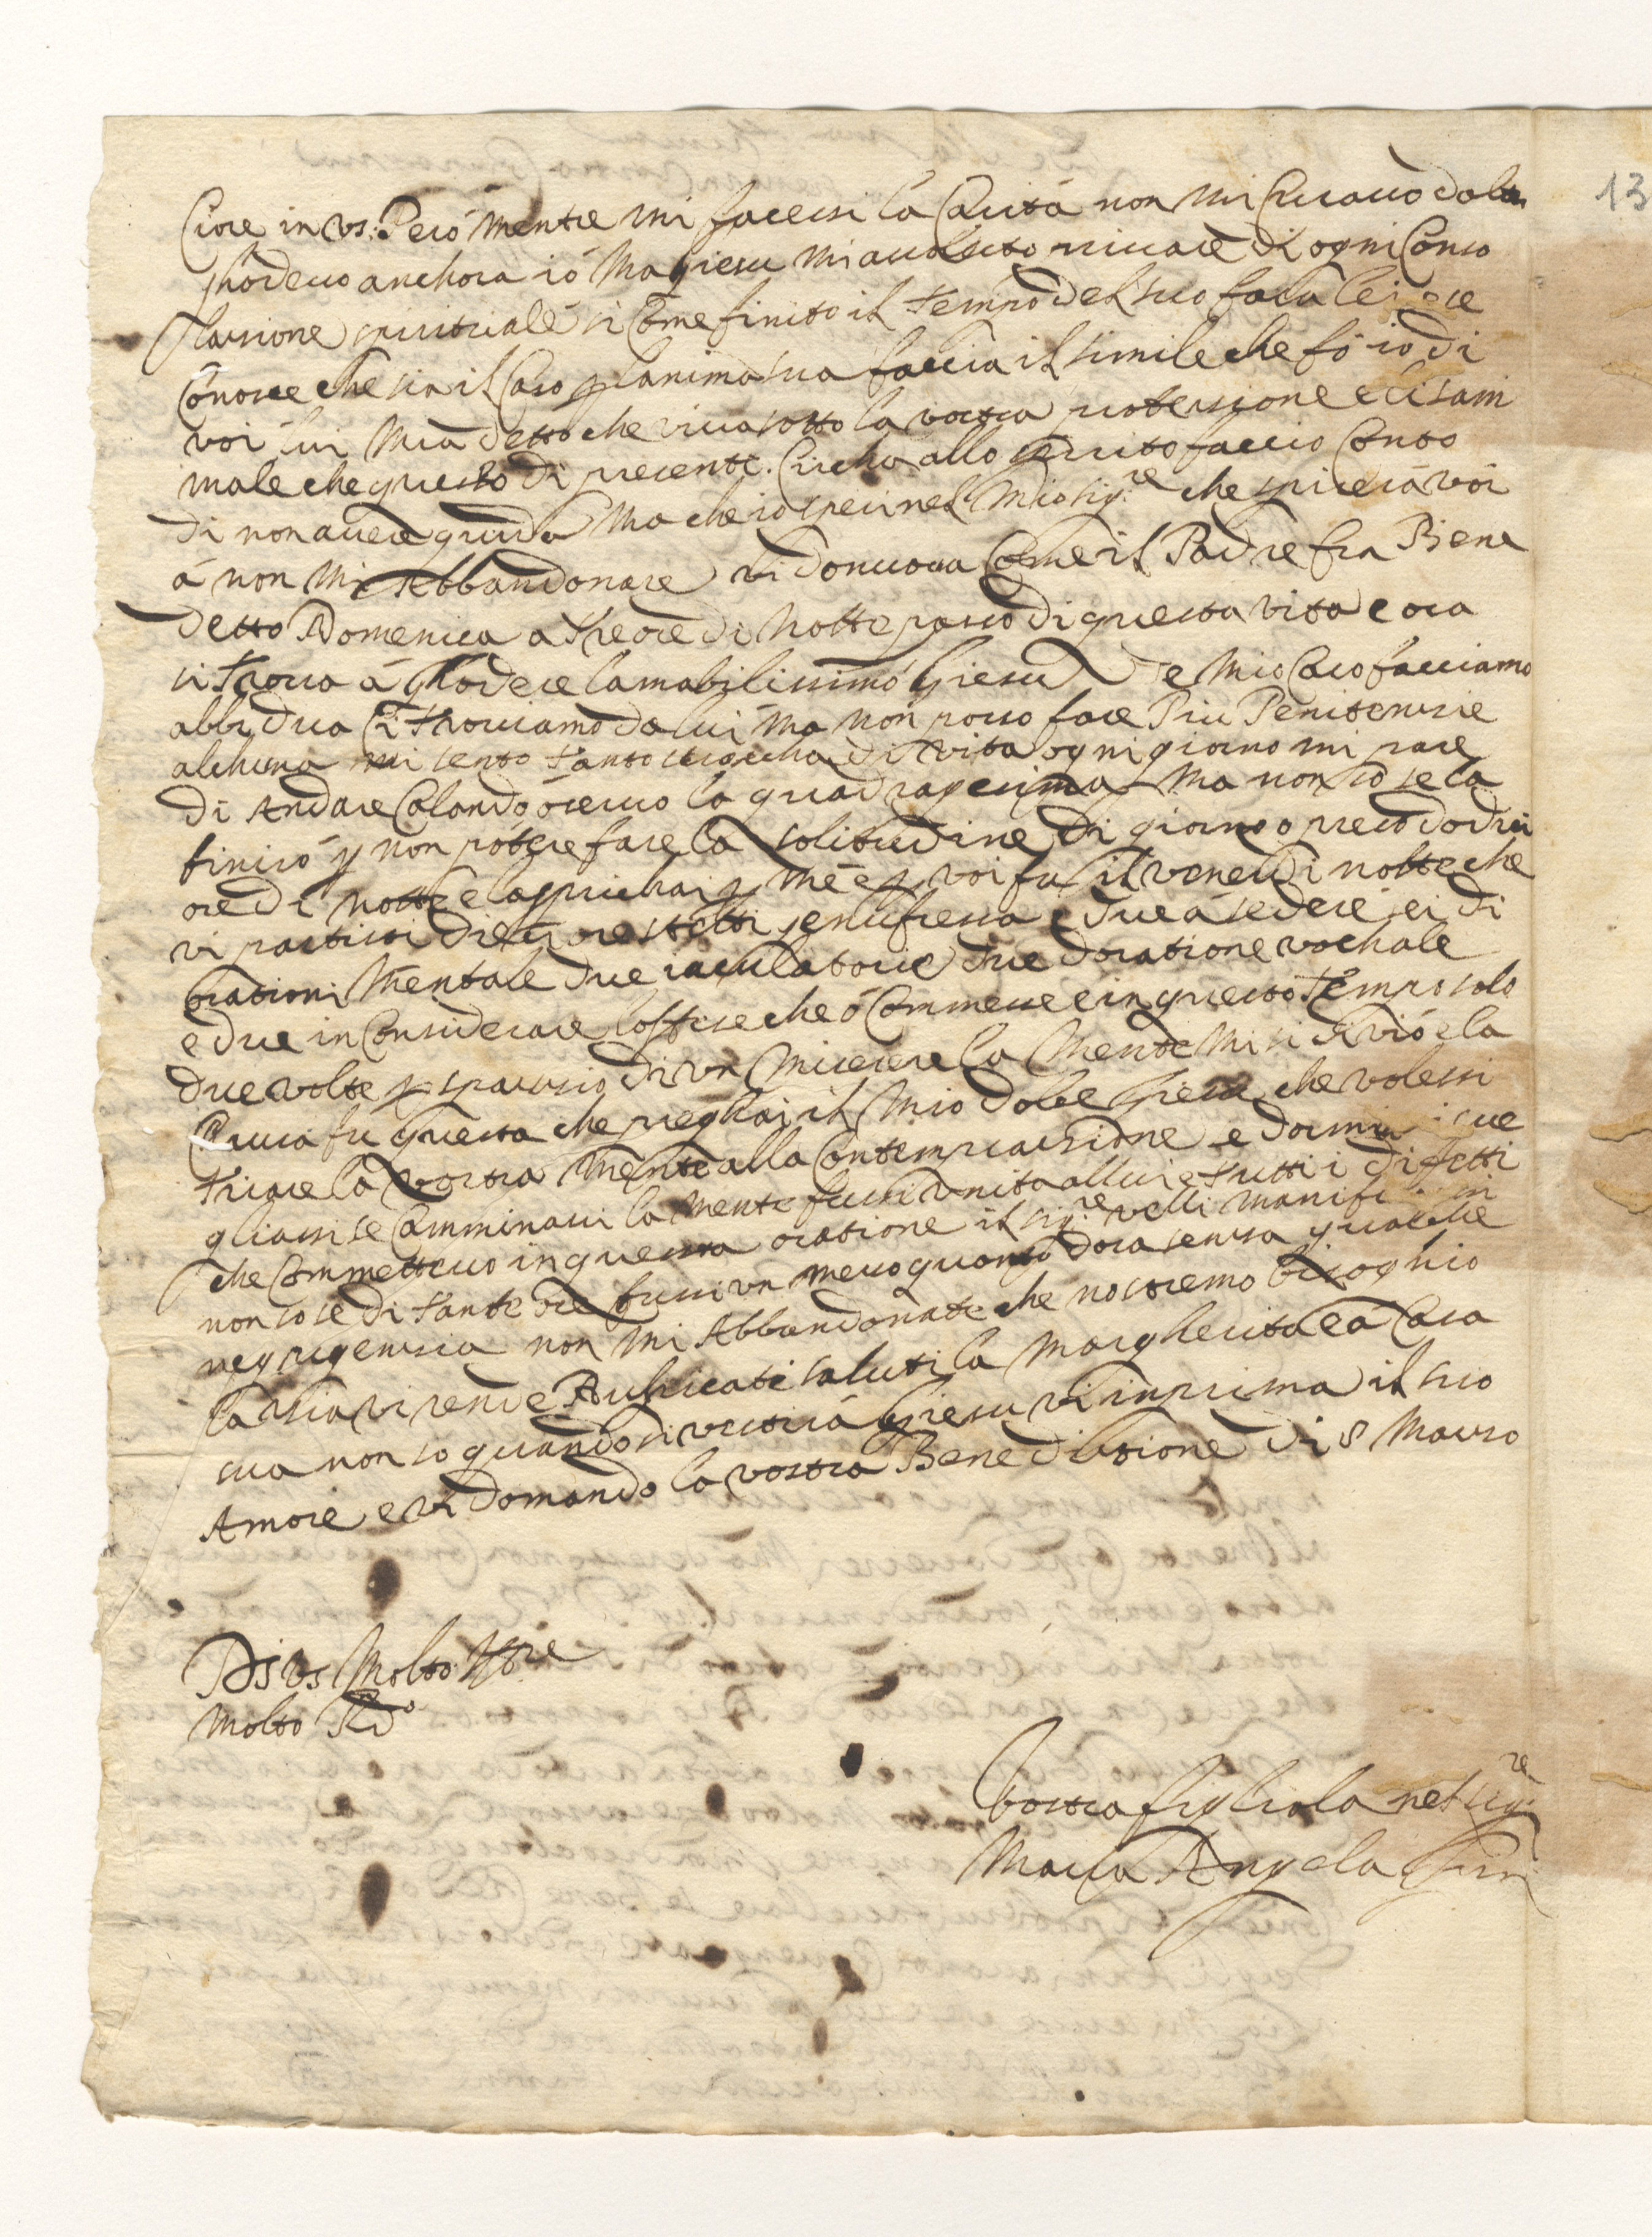 13
Ciore in vs: Però mentre mi facessi la Carità non mi Curauo doltr
ghodeuo anchora iò Ma giesu mi a uolsuto priuare di ogni Conso
lazione spirituale si Come finito il tempo del suo
Conosce che sia il Caso p lanima sua faccia il simile che fò io di
voi lui mia detto che viua sotto la vostra protezione e li sam
male che questo di presente. Circha allo scritto faccio Conto
di non auere guida Ma che io speri nel Mio sig.re che spirerà voi
à non mi Abbandonare vi do nuoua Come il Padre fra Bene
detto Domenica a tre ore di Notte passò di questa vita e ora
si troua à ghodere lamabilissimo Giesu e Mio Caro facciamo
abbi dua Ci trouiamo da lui ma non posso fare Piu Penitenzie
alchuna mi sento tanto stracha di vita ogni giorno mi pare
di Andare Calando osseruo la quadragesima Ma non so se la
finirò p non potere fare la solitudine di giorno o preso dodici
ore di notte e lapprichai p me e p voi fu il venerdi notte che
vi partissi dieci ore stetti genufressa e due à sedere sei di
orazioni Mentale due iaculatorie due doratione vochale
e due in Considerare loffese che ò Commesse e in questo tempo solo
due volte p spauzio di vn Miserere la Mente mi si suiò e la
Causa fu questa che preghai il Mio dolce giesu che volessi
tirare la vostra Mente alla Contempraizione e dormi
gliassi se Camminaui la Mente fussi vnita allui e tutti i difetti
che Commetteuo in questa oratione il sig.re velli manife
non so se di tante ore fussi vn mezo quarto dora senza qualche
negrigenzia non mi Abbandonate che nostremo bisoghio
la zia vi rende Duplicati saluti la Margherita e à Casa
sua non so quando si vestirà Giesu vi inprima il suo
Amore e vi domando la vostra Benedizione di 8 Marzo
Di vs Molto
Molto Rdo
Vostra figliola nel sig.re
Maria Angela Gini